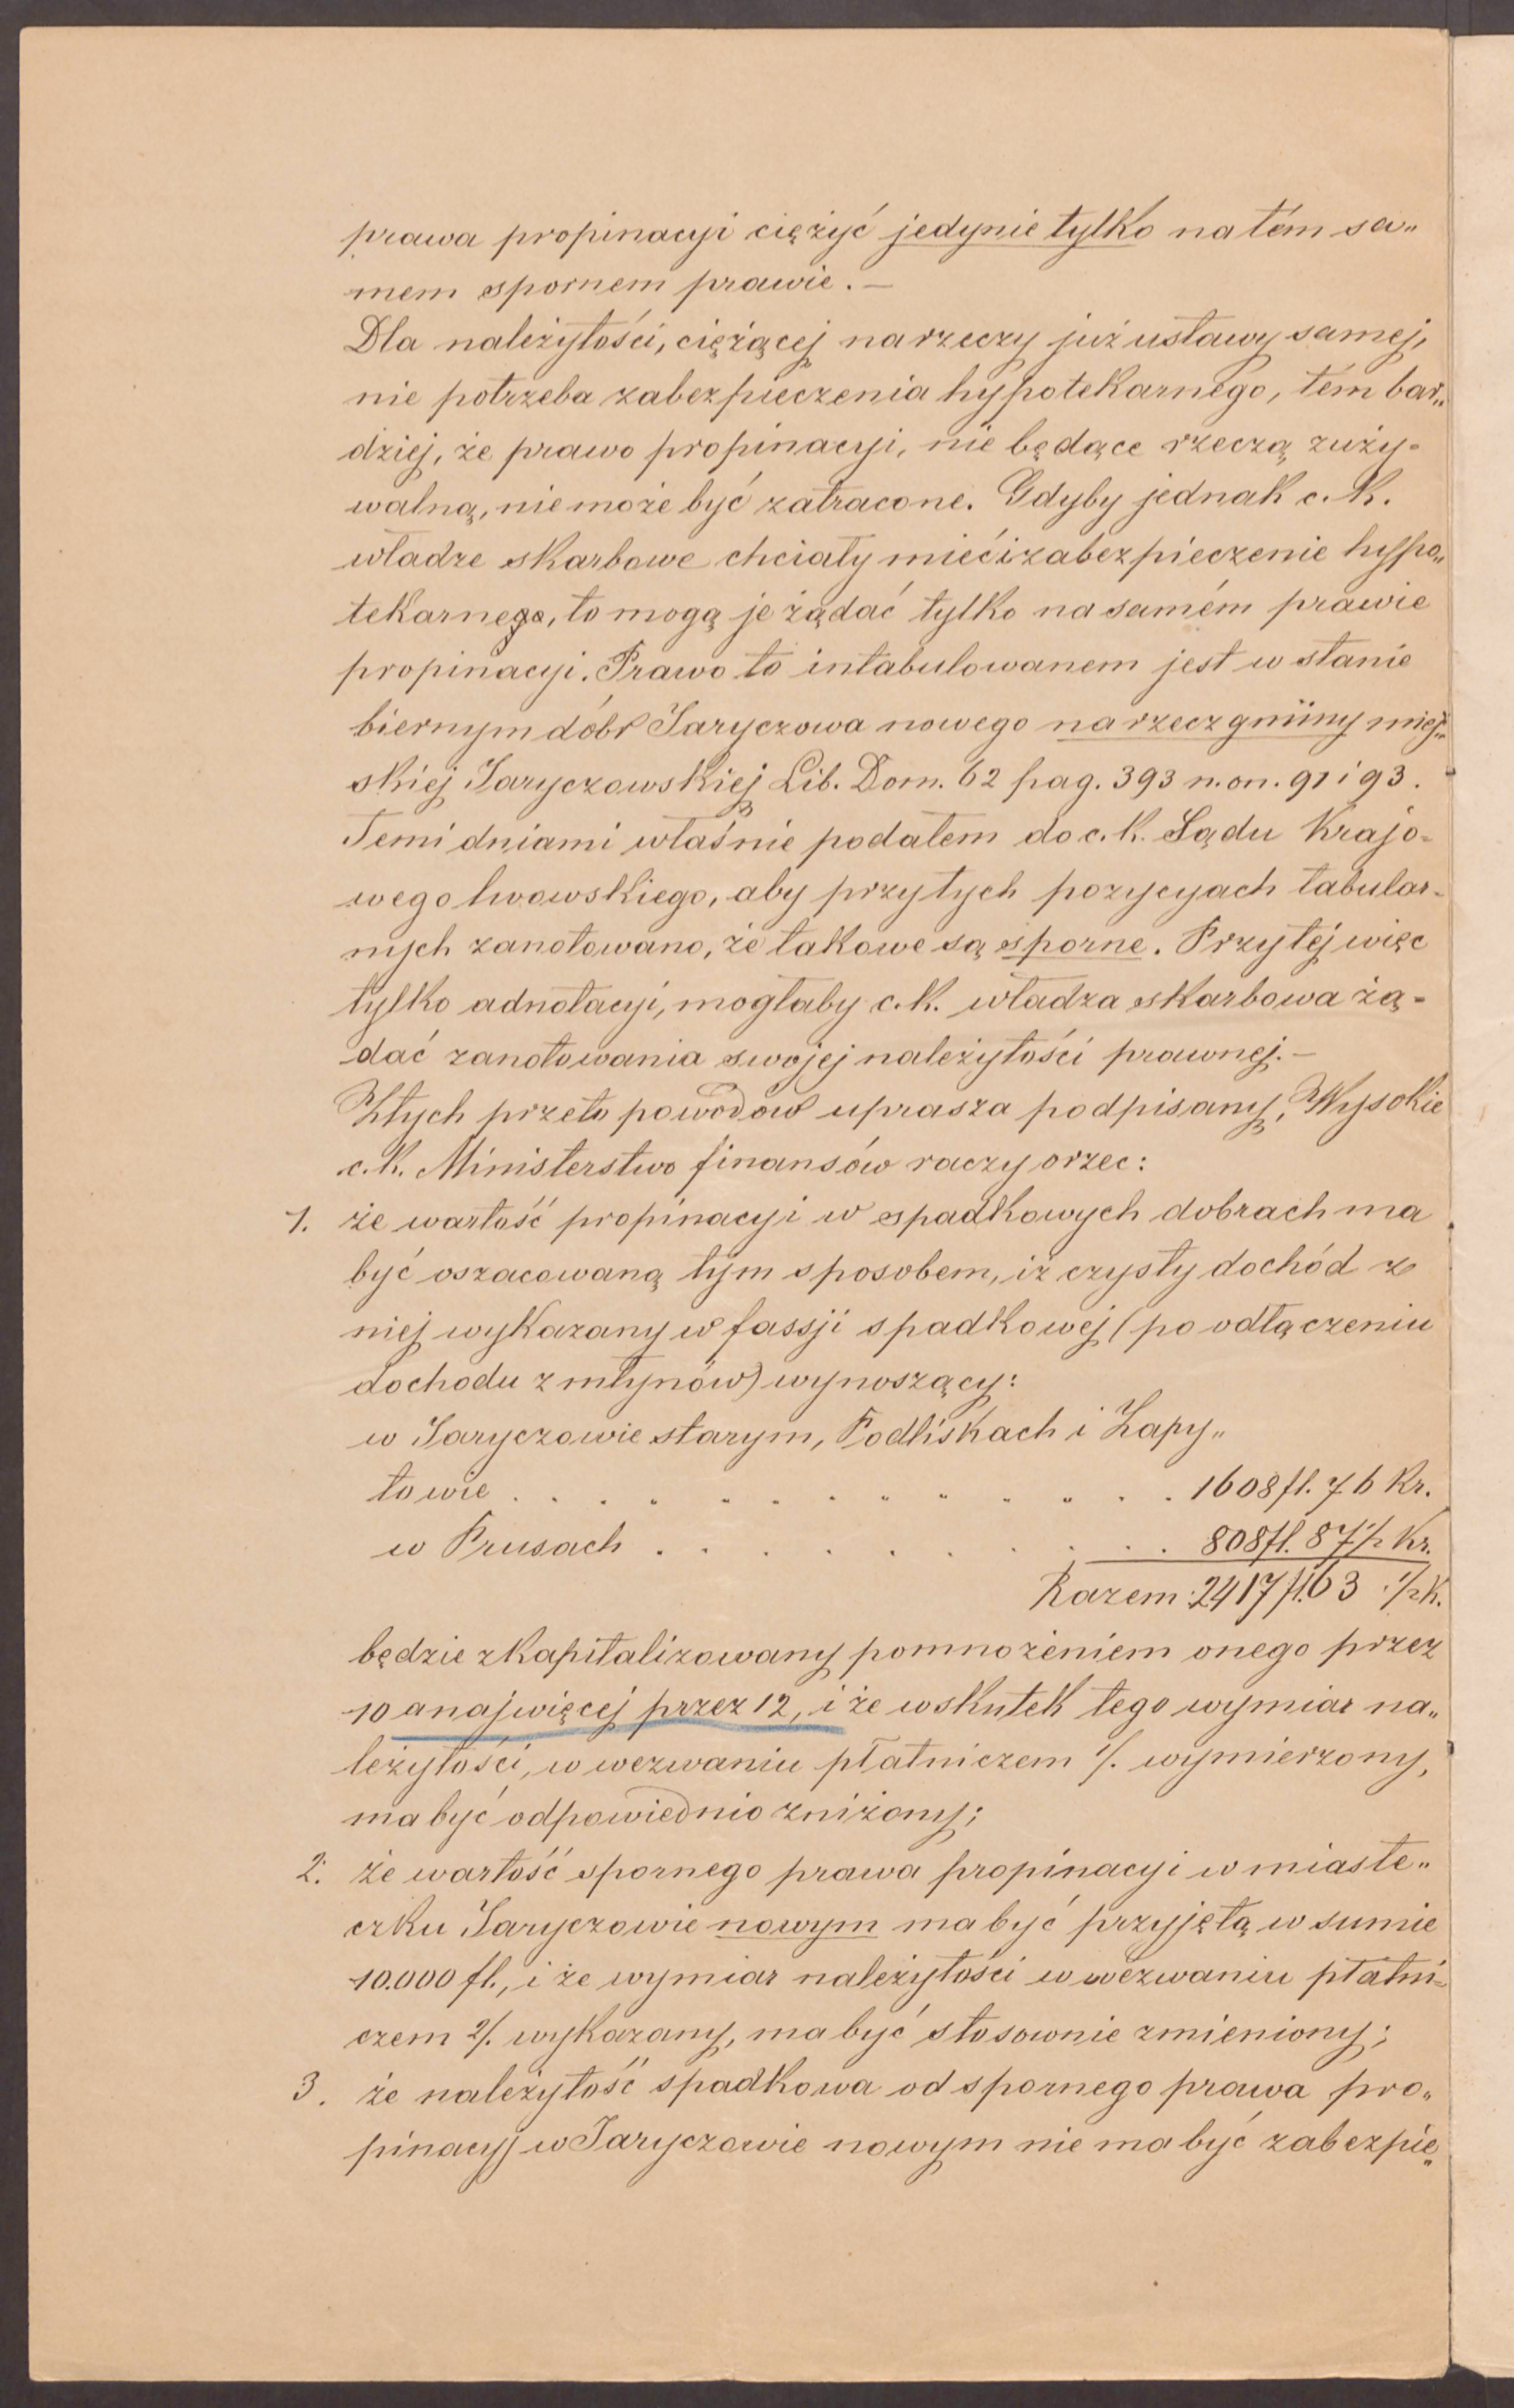 prawa propinacyi ciężyć jedynie tylko na tém sa„
mem spornem prawie. —
Dla należytości, ciężącej na rzeczy już ustawy samej,
nie potrzeba zabezpieczenia hypotekarnego, tém bar„
dziej, że prawo propinacyi, nie będące rzeczą zuży-
walną, nie może być zatracone. Gdyby jednak c. k.
władze skarbowe chciały mieć i zabezpieczenie hypo„
tekarnego, to mogą je żądać tylko na samém prawie
propinacyi. Prawo to intabulowanem jest w stanie
biernym dóbr Jaryczowa nowego na rzecz gminy miej„
skiej Jaryczowskiej Lib. Dom. 62 pag. 393 n. on. 91 i 93.
Temi dniami właśnie podałem do c. k. Sądu Krajo-
wego lwowskiego, aby przy tych pozycyach tabular-
nych zanotowano, że takowe są sporne. Przy tej więc
tylko adnotacyi, mogłaby c. k. władza skarbowa żą-
dać zanotowania swojej należytości prawnej. —
Z tych przeto powodów uprasza podpisany, Wysokie
c. k. Ministerstwo finansów raczy orzec:
1. że wartość propinacyi w spadkowych dobrach ma
być oszacowaną tym sposobem, iż czysty dochód z
niej wykazany w fassji spadkowej (po odłączeniu
dochodu z młynów) wynoszący:
w Jaryczowie starym, Podliskach i Zapy„
towie . . . . . . . . . . . . . 1608 fl. 76 kr.
w Prusach . . . . . . . . . . 808 fl. 87½ kr.
Razem 2417 fl. 63 ½ k.
będzie zkapitalizowany pomnożeniem onego przez
10 a najwięcej przez 12, i że wskutek tego wymiar na„
leżytości, w wezwaniu płatniczem 1/. wymierzony,
ma być odpowiednio zniżony;
2. że wartość spornego prawa propinacyi w miaste„
czku Jaryczowie nowym ma być przyjętą w sumie
10.000 fl., i że wymiar należytości w wezwaniu płatni-
czem 2/. wykazany, ma być stosownie zmieniony;
3. że należytość spadkowa od spornego prawa pro„
pinacyj w Jaryczowie nowym nie ma być zabezpie„